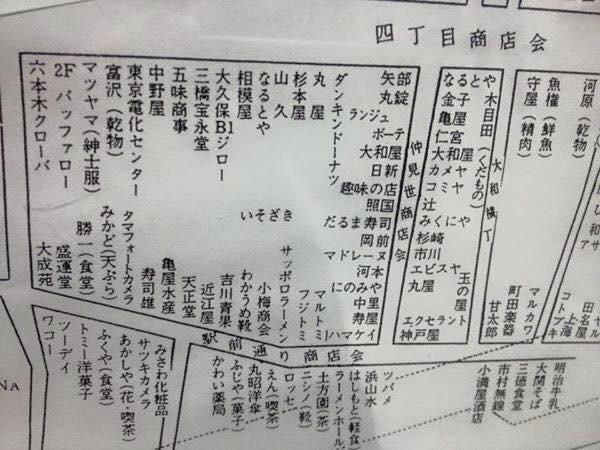 四丁目商店会
六本木クローバ
2F バッファロー
マツヤマ(紳士服)
富沢(乾物)
東京電化センター
中野屋
五味商事
三橋宝永堂
大久保B1ジロー
相模屋
なるとや
山久
杉本屋
丸屋
ダンキンドーナツ
矢部
丸錠
ランジュ
ボーテ
大和屋
日の新
趣味の店
照国
だるま寿司
岡前
マドレーヌ
河本
にのみや
中里
寿屋
ハマケイ
仲見世商店会
なるとや
金子
亀屋
仁宮
大和屋
カメヤ
コミヤ
辻
みくにや
杉崎
市川
エビスヤ
丸屋
玉の屋
エクセラント
神戸屋
木目田(くだもの)
大和横丁
甘太郎
守屋(精肉)
魚権(鮮魚)
河原(乾物)
町田楽器
マルカワ
上海
田名屋
いそざき
大成苑
盛運堂
勝一(食堂)
みかど(天ぷら)
タマフォートカメラ
寿司雄
亀屋水産
天正堂
近江屋
吉川青果
わかうめ靴
小梅商会
サッポロラーメン
フジトミ
マルトミ
駅前通り商店会
ワコー
ツーデイ
トミー洋菓子
ふくや(食堂)
あかしや(花・喫茶)
サツキカメラ
みさわ化粧品
かわい薬局
ふじや(菓子)
丸昭洋傘
えん(喫茶)
ロッセ
ニシノ(靴)
土方園(茶)
ラーメンホール
はしもと(軽食)
浜山水
ツバメ
小満屋酒店
市村無線
三徳食堂
大関そば
明治牛乳
NA